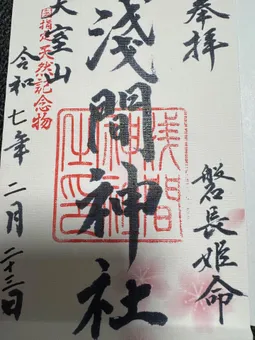 奉拝
磐長姫命
淺間神社
大室山
国指定天然記念物
令和七年二月二十三日